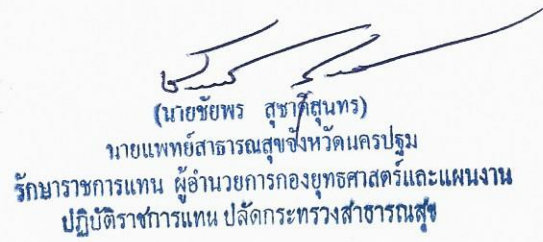 (นายชัยพร สุชาติสุนทร)
นายแพทย์สาธารณสุขจังหวัดนครปฐม
รักษาราชการแทน ผู้อำนวยการกองยุทธศาสตร์และแผนงาน
ปฏิบัติราชการแทน ปลัดกระทรวงสาธารณสุข